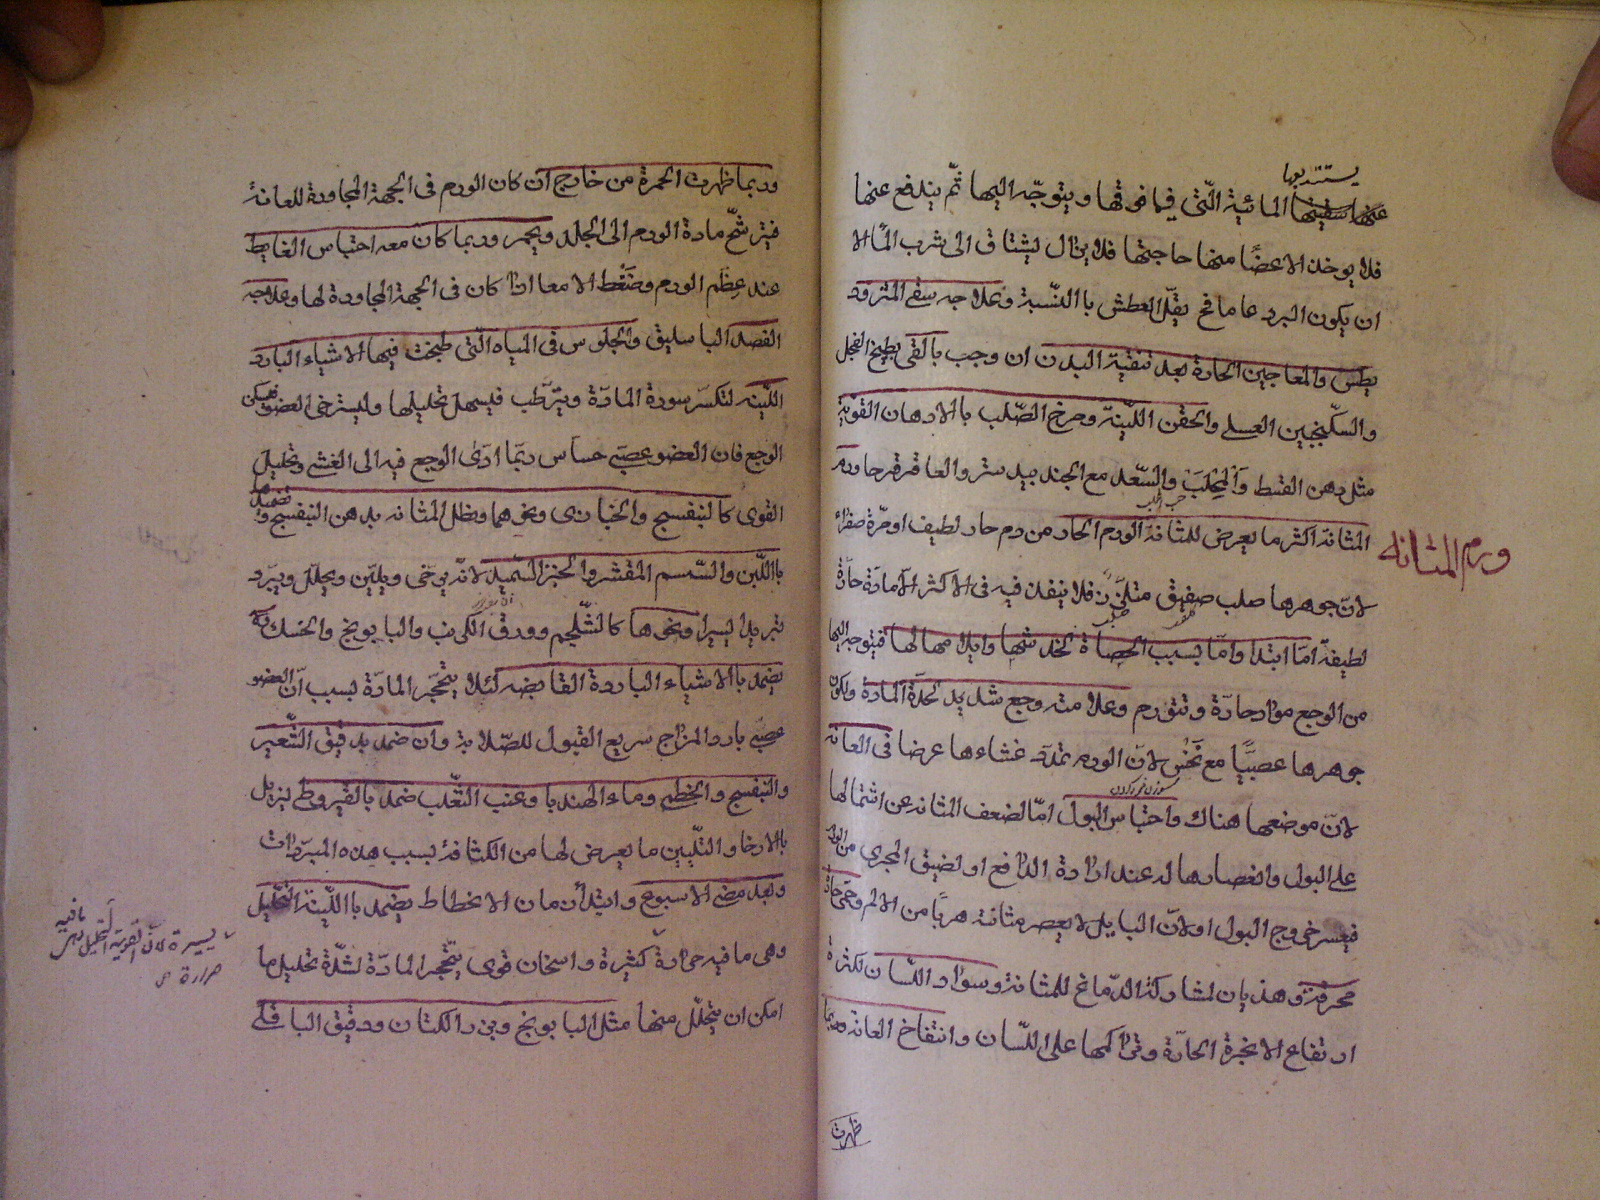 يستتد بها
عنها المائية الّتى فيما فوقها ويتوجّه اليها ثمّ يندفع عنها
فلا يوخذ الاعضا منها حاجتها فلا يزال يشتاق الى شرب المآ الا
ان يكون البرد عاما فح يقلّ العطش باالنّسبة وعلاجه سقى المثرود
يطوس والمعاجين الحارة بعد تنقية البدن ان وجب بالقى بطبخ الفجل
والسكّنجبين العسلى والحقن اللّينة ومرخ الصّلب باالادهان القوية
مثل دهن القسط والمحلب والسّعد مع الجند بيدستر والعاقرقرحا ورم
ورم المثانة
المثانة اكثر ما يعرض للمثانة الورم الحار من دم حار لطيف او مرّة صفراء
لانّ جوهرها صلب صفيق متلزّز فلا ينفذ فيه فى الاكثر الّا مادة حآدّة
لطيفة امّا ابتدا وامّا بسبب الحصاة لخدشها وايلامها لها فيتوجه اليها
من الوجع موادّ حادّة وتتورم وعلامته وجع شديد لحدّة المادة ولكون
جوهرها عصبيًّا مع نخس لانّ الورم يمدّد غشاءها عرضا فى العانة
لانّ موضعها هناك واحتباس البول امّا لضعف المثانه عن اشتمالها
على البول وانعصارها له عند ارادة الدافع او لضيق المجرى من الورم
فيعسر خروج البول او لانّ البايل لا يعصر مثانة هربًا من الالم وحمى حادة
محرقة وهذيان لمشاركة الدّماغ للمثانة وسواد اللّسان لكثرة
ارتفاع الابخرة الحادّة وتراكمها على اللّسان وانتفاخ العانة وربما
ظهرت
وربما ظهرت الحمرة من خارج ان كان الورم فى الجهة المجاورة للعانة
فيترشّح مادة الورم الى الجلد ويحمر وربما كان معه احتباس الغايط
عند عِظَم الورم وضَغْط الامعا اذا كان فى الجهة المجاورة لها وعلاجه
الفصد الباسليق والجلوس فى المياه الّتى طبخت فيها الاشياء البارد
اللّينه لتكسر سورة المادّة ويترطّب فيسهل تحليلها وليسترخى العضو فيسكن
الوجع فان العضو عصبى حساس ربّما ادّى الوجع فيه الى الغشى وتحليل
القوى كالبنفسج والخبازى ونحوهما وبطل المثانه بدهن البنفسج و تضميدها
بااللّبن والسّمسم المقشر والخبز السّميد لانّه يرخى ويليّن ويحلّل ويبرد
تبريدا يسيرا ونحوها كالشّلجم وورق الكرنب والبابونج والخسك ولا
يضمد باالاشياء الباردة القابضه لئلا يتحجّر المادّة بسبب انّ العضو
عصبى بارد المزاج سريع القبول للصّلابة وان ضمد بدقيق الشّعير
والبنفسج والخطمى وماء الهندبا وعنب الثّعلب ضمد بالقيروطى ليزيل
باالارخا والتّليين ما يعرض لها من الكثافة بسبب هذه المبردات
وبعد مضى الاسبوع وابتدأ زمان الانحطاط يضمد بااللّينة التحليل
وهى ما فيه حرارة كثيرة واسخان قوى يتحجر المادّة لشدّة تحليل ما
امكن ان يتحلّل منها مثل البابونج وبزر الكتان ودقيق الباقلى
يسيرة لانّ القوية التحليل
حرارة ص